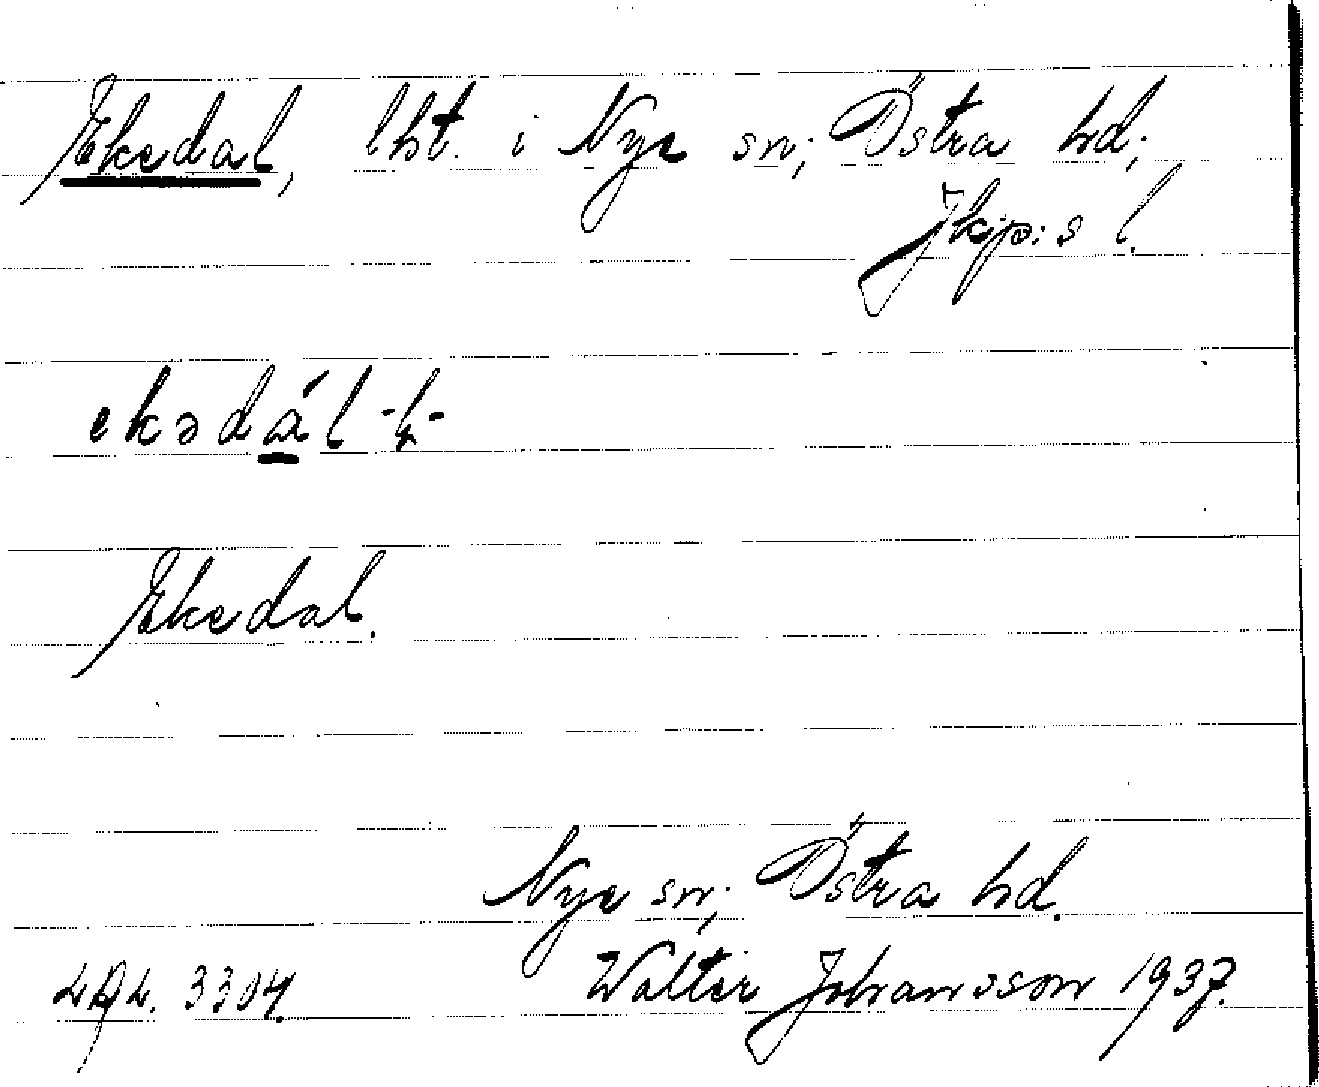 Ekedal, lht. i Nye sn; Östra hd;
Jkp:s l.
ekədál -l-
Ekedal.
Nye sn; Östra hd.
LAL. 3304. Walter Johansson 1937.